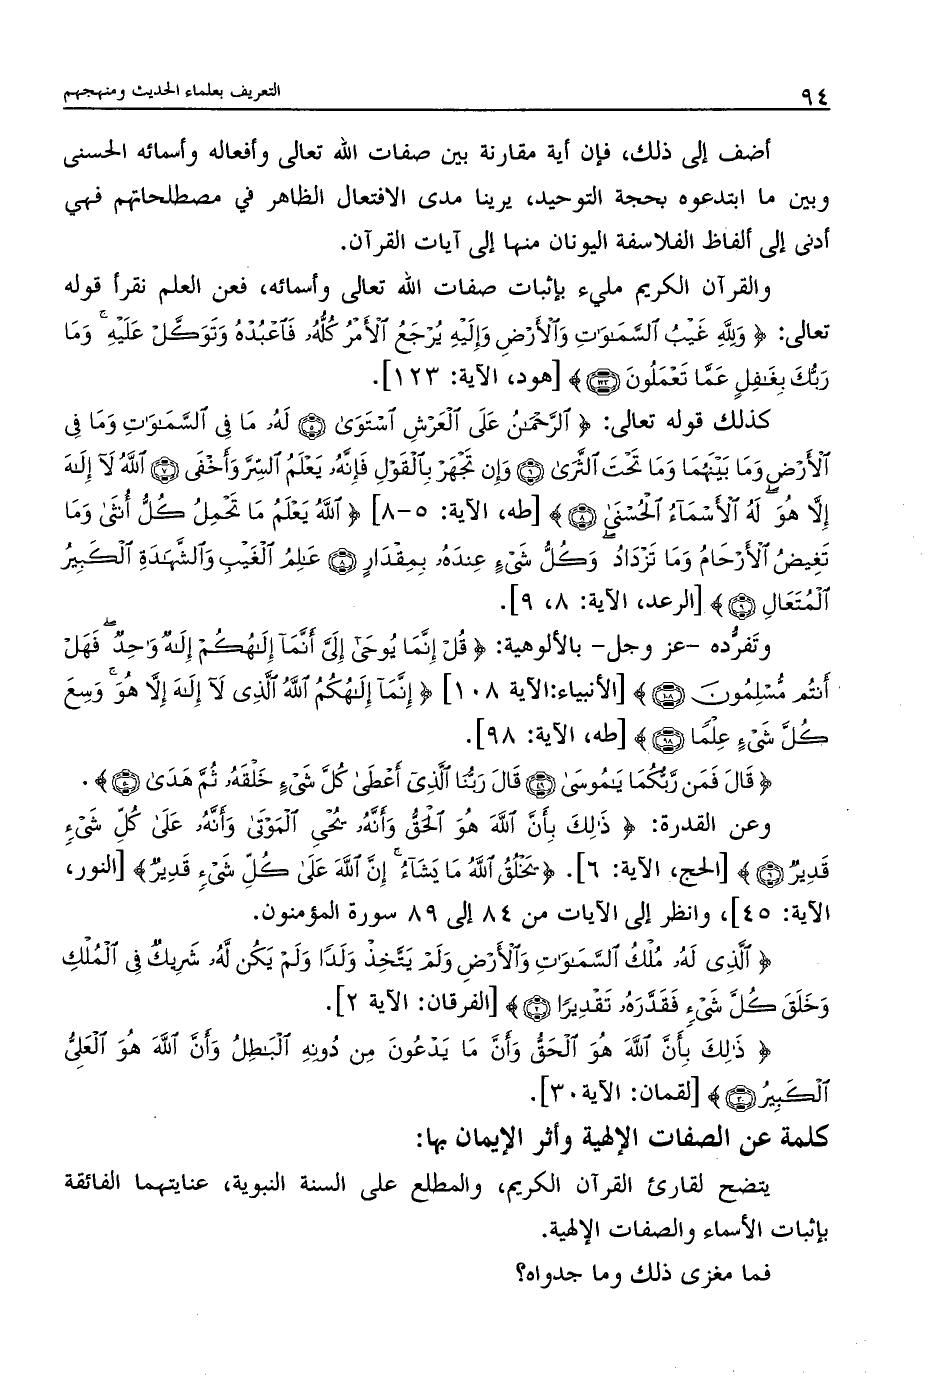 ٩٤
التعريف بعلماء الحديث ومنهجهم
أضف إلى ذلك، فإن أية مقارنة بين صفات الله تعالى وأفعاله وأسمائه الحسنى
وبين ما ابتدعوه بحجة التوحيد، يرينا مدى الافتعال الظاهر في مصطلحاتهم فهي
أدنى إلى ألفاظ الفلاسفة اليونان منها إلى آيات القرآن.
والقرآن الكريم مليء بإثبات صفات الله تعالى وأسمائه، فعن العلم نقرأ قوله
تعالى: ﴿ وَلِلَّهِ غَيْبُ ٱلسَّمَـٰوَٰتِ وَٱلْأَرْضِ وَإِلَيْهِ يُرْجَعُ ٱلْأَمْرُ كُلُّهُۥ فَٱعْبُدْهُ وَتَوَكَّلْ عَلَيْهِ ۚ وَمَا
رَبُّكَ بِغَـٰفِلٍ عَمَّا تَعْمَلُونَ ١٢٣ ﴾ [هود، الآية: ١٢٣].
كذلك قوله تعالى: ﴿ ٱلرَّحْمَـٰنُ عَلَى ٱلْعَرْشِ ٱسْتَوَىٰ ٥ لَهُۥ مَا فِى ٱلسَّمَـٰوَٰتِ وَمَا فِى
ٱلْأَرْضِ وَمَا بَيْنَهُمَا وَمَا تَحْتَ ٱلثَّرَىٰ ٦ وَإِن تَجْهَرْ بِٱلْقَوْلِ فَإِنَّهُۥ يَعْلَمُ ٱلسِّرَّ وَأَخْفَى ٧ ٱللَّهُ لَآ إِلَـٰهَ
إِلَّا هُوَ ۖ لَهُ ٱلْأَسْمَآءُ ٱلْحُسْنَىٰ ٨ ﴾ [طه، الآية: ٥-٨] ﴿ ٱللَّهُ يَعْلَمُ مَا تَحْمِلُ كُلُّ أُنثَىٰ وَمَا
تَغِيضُ ٱلْأَرْحَامُ وَمَا تَزْدَادُ ۖ وَكُلُّ شَىْءٍ عِندَهُۥ بِمِقْدَارٍ ٨ عَـٰلِمُ ٱلْغَيْبِ وَٱلشَّهَـٰدَةِ ٱلْكَبِيرُ
ٱلْمُتَعَالِ ٩ ﴾ [الرعد، الآية: ٨، ٩].
وتَفرُّده -عز وجل- بالألوهية: ﴿ قُلْ إِنَّمَا يُوحَىٰٓ إِلَىَّ أَنَّمَآ إِلَـٰهُكُمْ إِلَـٰهٌ وَٰحِدٌ ۖ فَهَلْ
أَنتُم مُّسْلِمُونَ ١٠٨ ﴾ [الأنبياء:الآية ١٠٨] ﴿ إِنَّمَآ إِلَـٰهُكُمُ ٱللَّهُ ٱلَّذِى لَآ إِلَـٰهَ إِلَّا هُوَ ۚ وَسِعَ
كُلَّ شَىْءٍ عِلْمًا ٩٨ ﴾ [طه، الآية: ٩٨].
﴿ قَالَ فَمَن رَّبُّكُمَا يَـٰمُوسَىٰ ٤٩ قَالَ رَبُّنَا ٱلَّذِىٓ أَعْطَىٰ كُلَّ شَىْءٍ خَلْقَهُۥ ثُمَّ هَدَىٰ ٥٠ ﴾ .
وعن القدرة: ﴿ ذَٰلِكَ بِأَنَّ ٱللَّهَ هُوَ ٱلْحَقُّ وَأَنَّهُۥ يُحْىِ ٱلْمَوْتَىٰ وَأَنَّهُۥ عَلَىٰ كُلِّ شَىْءٍ
قَدِيرٌ ٦ ﴾ [الحج، الآية: ٦]. ﴿ يَخْلُقُ ٱللَّهُ مَا يَشَآءُ ۚ إِنَّ ٱللَّهَ عَلَىٰ كُلِّ شَىْءٍ قَدِيرٌ ﴾ [النور،
الآية: ٤٥]، وانظر إلى الآيات من ٨٤ إلى ٨٩ سورة المؤمنون.
﴿ ٱلَّذِى لَهُۥ مُلْكُ ٱلسَّمَـٰوَٰتِ وَٱلْأَرْضِ وَلَمْ يَتَّخِذْ وَلَدًا وَلَمْ يَكُن لَّهُۥ شَرِيكٌ فِى ٱلْمُلْكِ
وَخَلَقَ كُلَّ شَىْءٍ فَقَدَّرَهُۥ تَقْدِيرًا ٢ ﴾ [الفرقان: الآية ٢].
﴿ ذَٰلِكَ بِأَنَّ ٱللَّهَ هُوَ ٱلْحَقُّ وَأَنَّ مَا يَدْعُونَ مِن دُونِهِ ٱلْبَـٰطِلُ وَأَنَّ ٱللَّهَ هُوَ ٱلْعَلِىُّ
ٱلْكَبِيرُ ٣٠ ﴾ [لقمان: الآية٣٠].
كلمة عن الصفات الإلهية وأثر الإيمان بها:
يتضح لقارئ القرآن الكريم، والمطلع على السنة النبوية، عنايتهما الفائقة
بإثبات الأسماء والصفات الإلهية.
فما مغزى ذلك وما جدواه؟